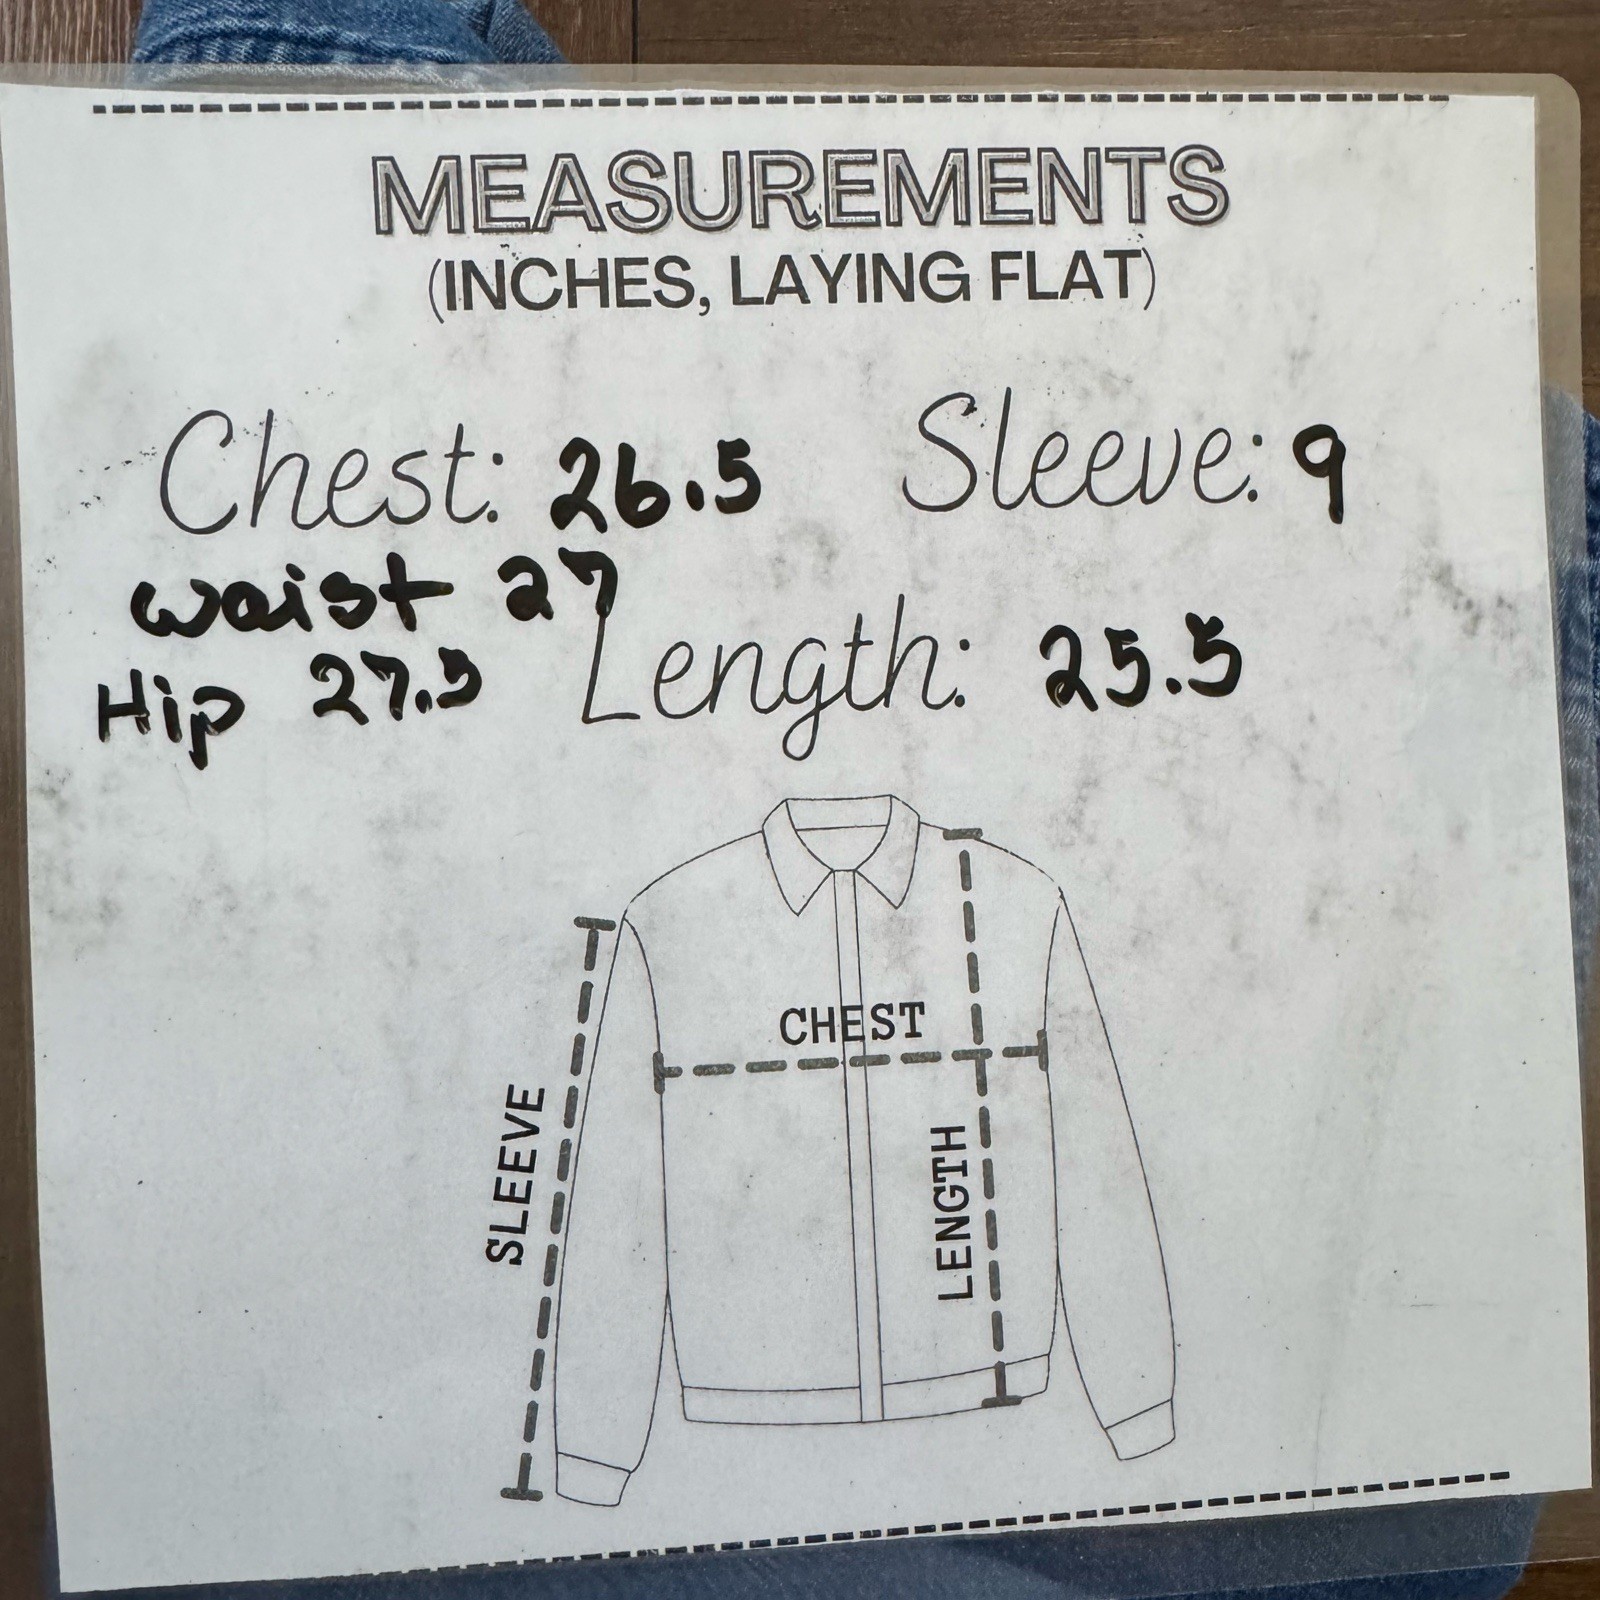 MEASUREMENTS
(INCHES, LAYING FLAT)
Chest: 26.5
Sleeve: 9
waist 27
Hip 27.5
Length: 25.5
CHEST
SLEEVE
LENGTH